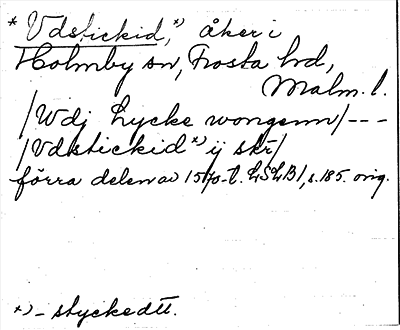 * Vdstickid,*) åker i
Holmby sn, Frosta hd,
Malm. l.
/Wdj Lycke wongenn/---
/Vdstickid*) ij skr/
förra delen av 1570-t. LSLB1, s. 185. orig.
*) - stycked tt.